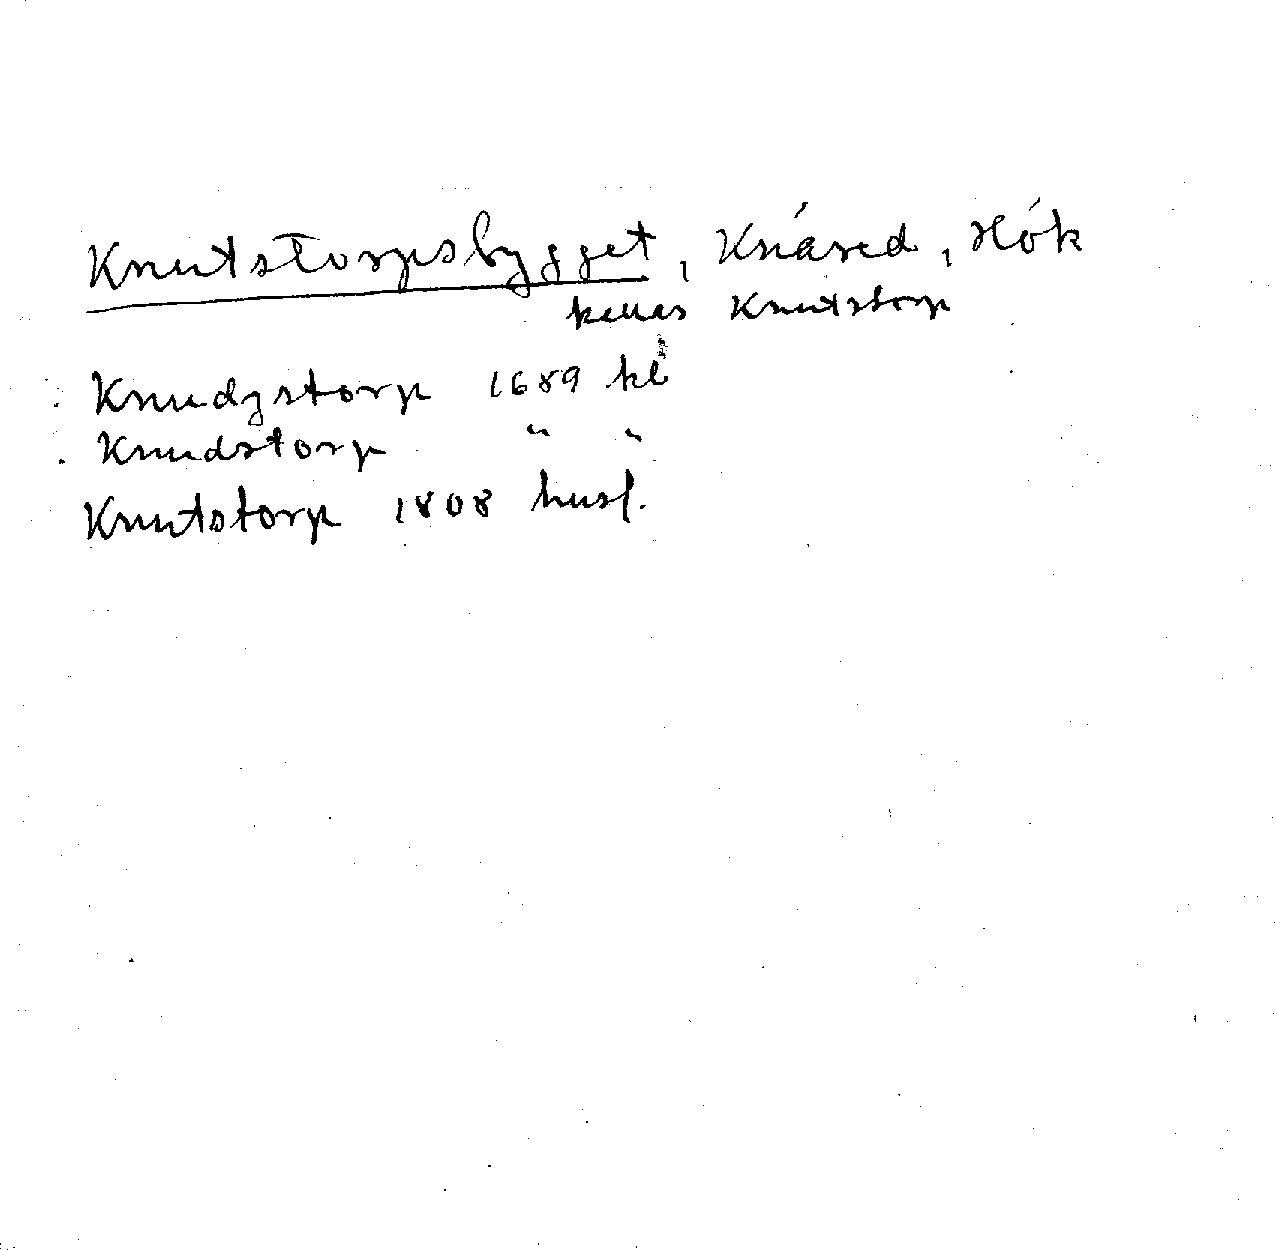 Knutstorpsbygget, Knäred, Hök
kallas Knutstorp
Knudzstorp 1689 kl
Knudstorp " "
Knutstorp 1808 husf.